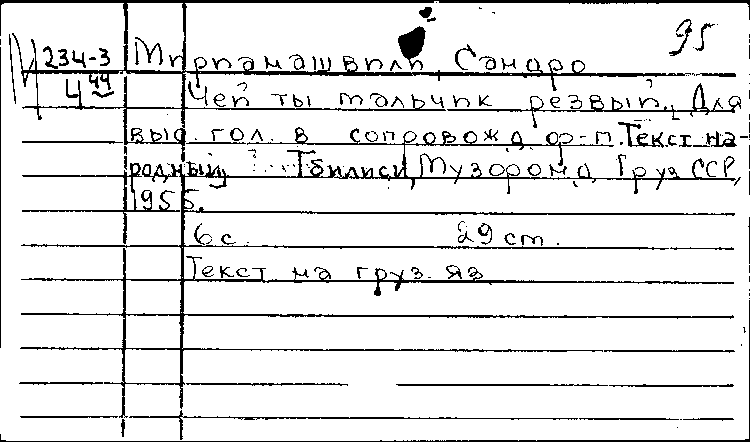 95
М 234-3 Мирианашвили, Сандро
4 44 Чей ты мальчик резвый. [Для
выс. гол. в сопровожд. ф-п. Текст на-
родный Тбилиси, Музфонд Груз ССР,
1955.
6 с. 29 cm.
Текст на груз. яз